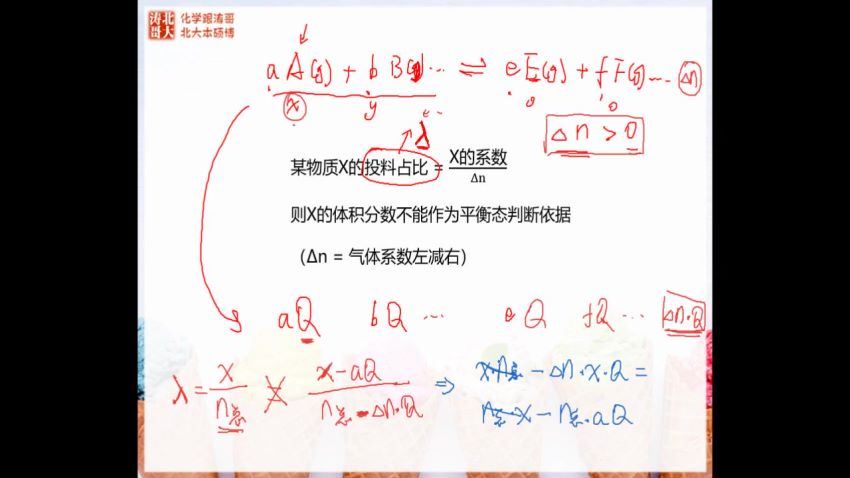 北大
涛哥
化学跟涛哥
北大本硕博
aA(g) + bB(g)… ⇌ eE(g) + fF(g)… Δn
x y 0 0
Δn > 0
λ
某物质X的投料占比 = X的系数/Δn
则X的体积分数不能作为平衡态判断依据
（Δn = 气体系数左减右）
aQ bQ … eQ fQ … Δn·Q
λ = x/n总 x-aQ/n总-Δn·Q ⇒ x·n总 - Δn·x·Q =
n总·x - n总·aQ